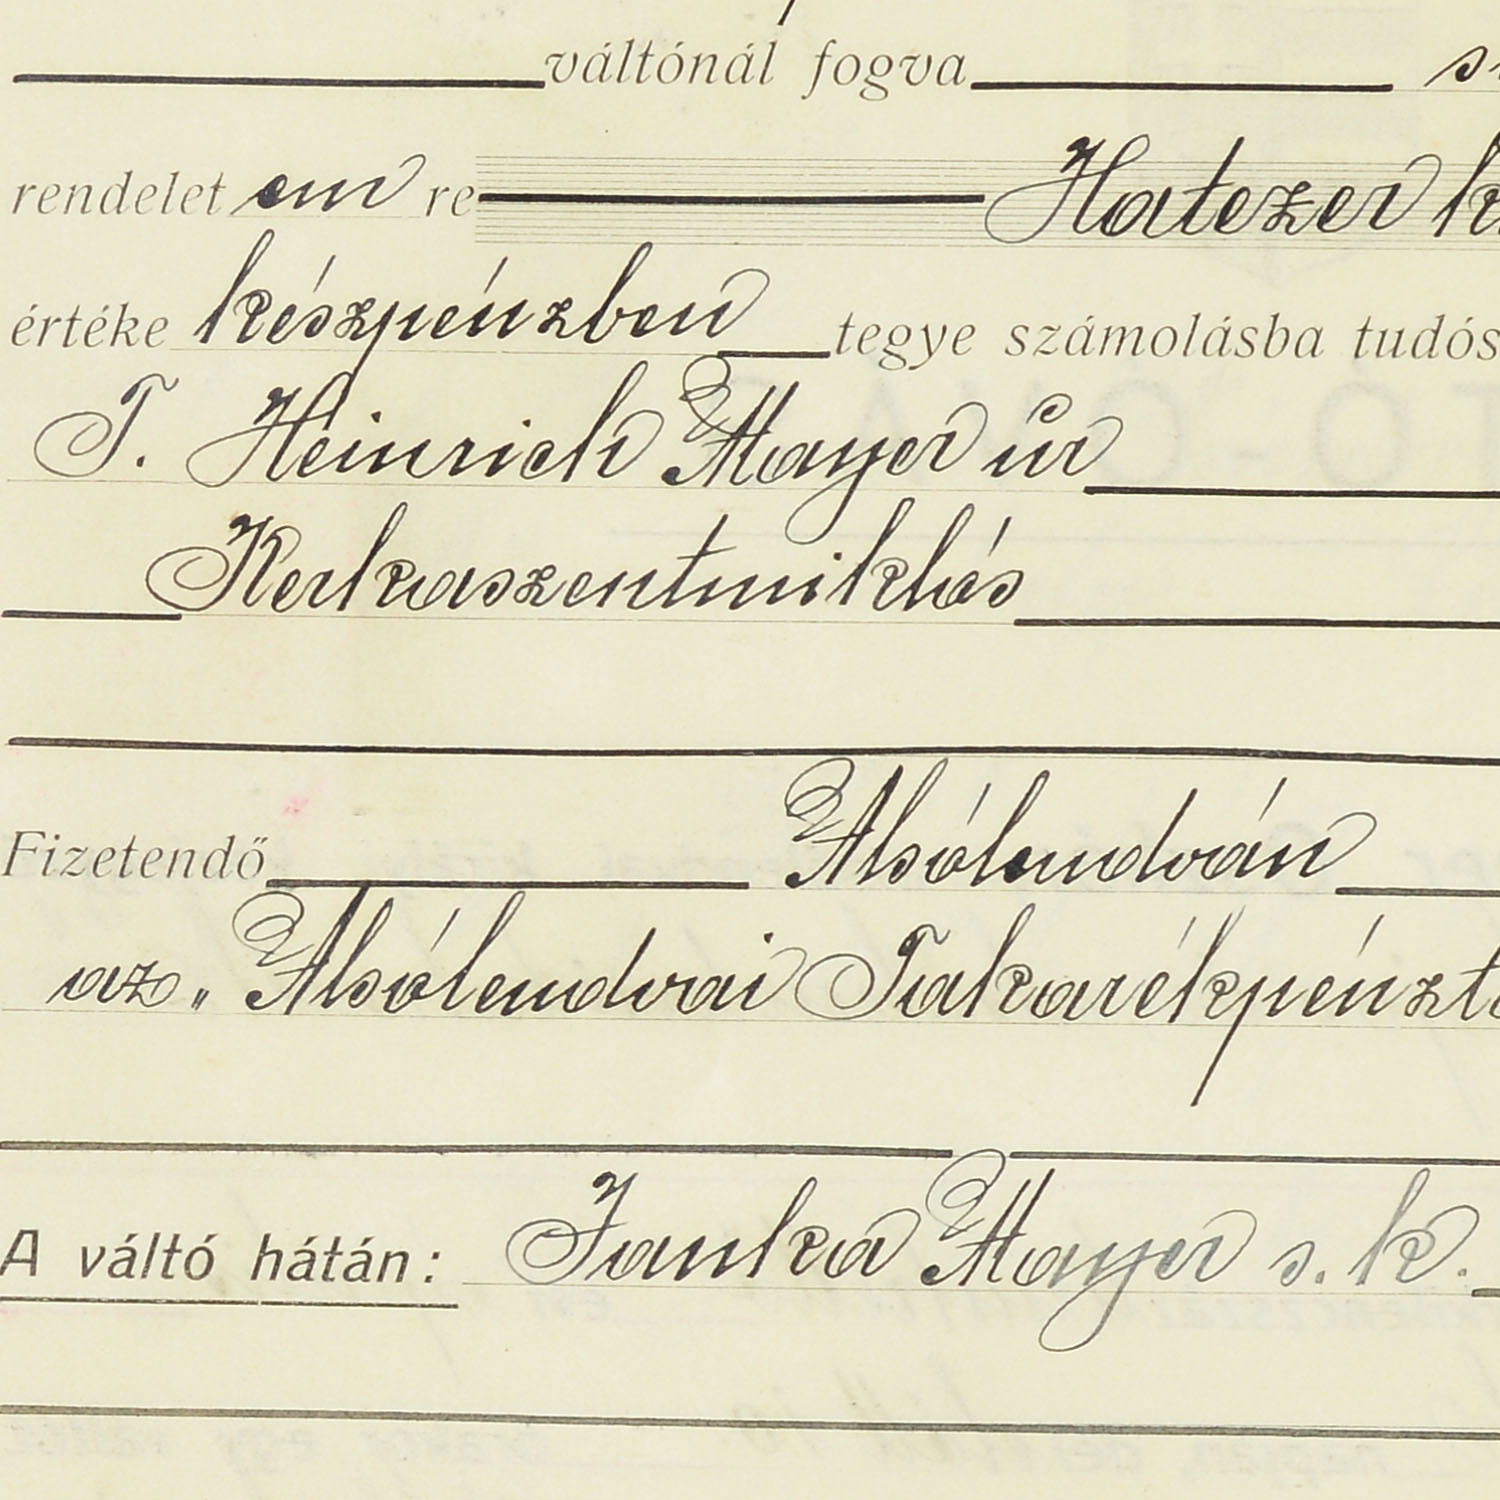 váltónál fogva
rendelet em re Hatezer
értéke készpénzben tegye számolásba
T. Heinrich Mayer úr
Kerkaszentmiklós
Fizetendő Alsólendván
az „Alsólendvai
A váltó hátán: Janka Mayer s. k.